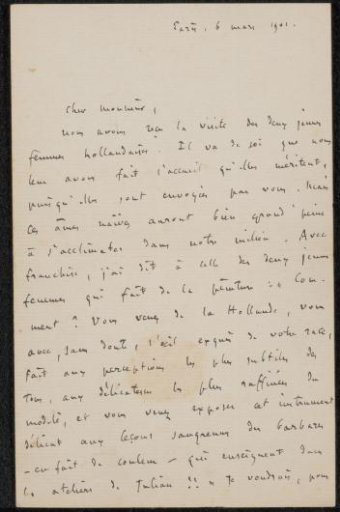 Paris, 6 mars 1901.
Cher monsieur,
nous avons reçu la visite des deux jeunes
femmes hollandaises. Il va de soi que nous
leur avons fait l'accueil qu'elles méritent,
puisqu'elles sont envoyées par vous. Mais
ces âmes naïves auront bien grand peine
à s'acclimater dans notre milieu. Avec
franchise, j'ai dit à celle des deux jeunes
femmes qui fait de la peinture : « Com-
ment ? Vous venez de la Hollande, vous
avez, sans doute, l'œil exquis de votre race,
fait aux perceptions les plus subtiles des
tons, aux délicatesses les plus raffinées du
modelé, et vous venez exposer cet instrument
délicat aux leçons saugrenues des barbares
- en fait de couleur - qui enseignent dans
les ateliers de Julian !! » Je voudrais, pour